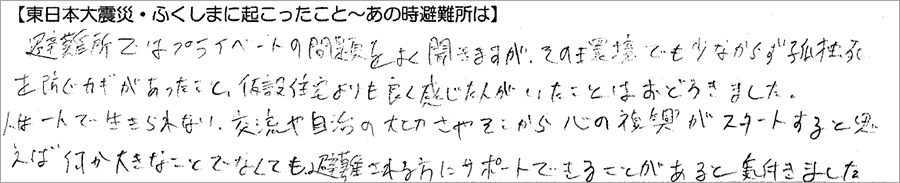 【東日本大震災・ふくしまに起こったこと～あの時避難所は】
避難所ではプライベートの問題をよく聞きますが、その環境でも少なからず孤独死
を防ぐカギがあったこと、仮設住宅よりも良く感じた人がいたことはおどろきました。
人は一人で生きられない、交流や自治の大切さやそこから心の復興がスタートすると思
えば何か大きなことでなくても、避難される方にサポートできることがあると気付きました